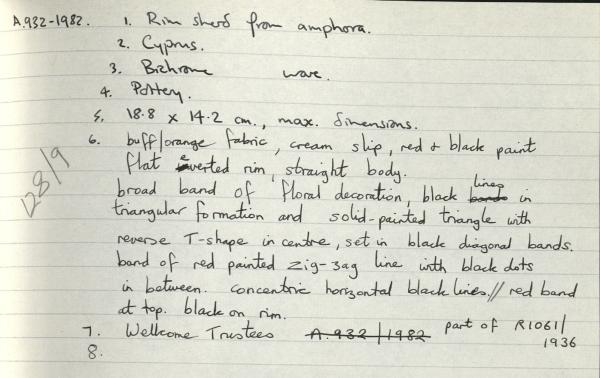 A.932-1982. 1. Rim sherd from amphora.
2. Cyprus.
3. Bichrome ware.
4. Pottery.
5. 18.8 x 14.2 cm., max. dimensions.
6. buff/orange fabric, cream slip, red + black paint
flat everted rim, straight body.
broad band of floral decoration, black bands lines in
triangular formation and solid-painted triangle with
reverse T-shape in centre, set in black diagonal bands.
band of red painted zig-zag line with black dots
in between. concentric horizontal black lines // red band
at top. black on rim.
7. Wellcome Trustees A.932/1982 part of R1061/
1936
8.
128/9